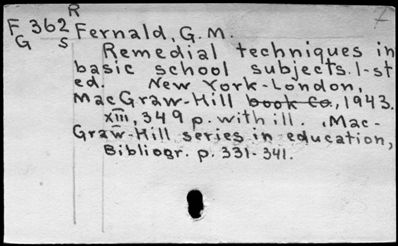 R
F 362 Fernald, G. M.
G s
Remedial techniques in
basic school subjects. 1-st
ed. New York-London,
MacGraw-Hill book Co., 1943.
XIII, 349 p. with ill. .Mac-
Graw-Hill series in education,
Bibliogr. p. 331-341.